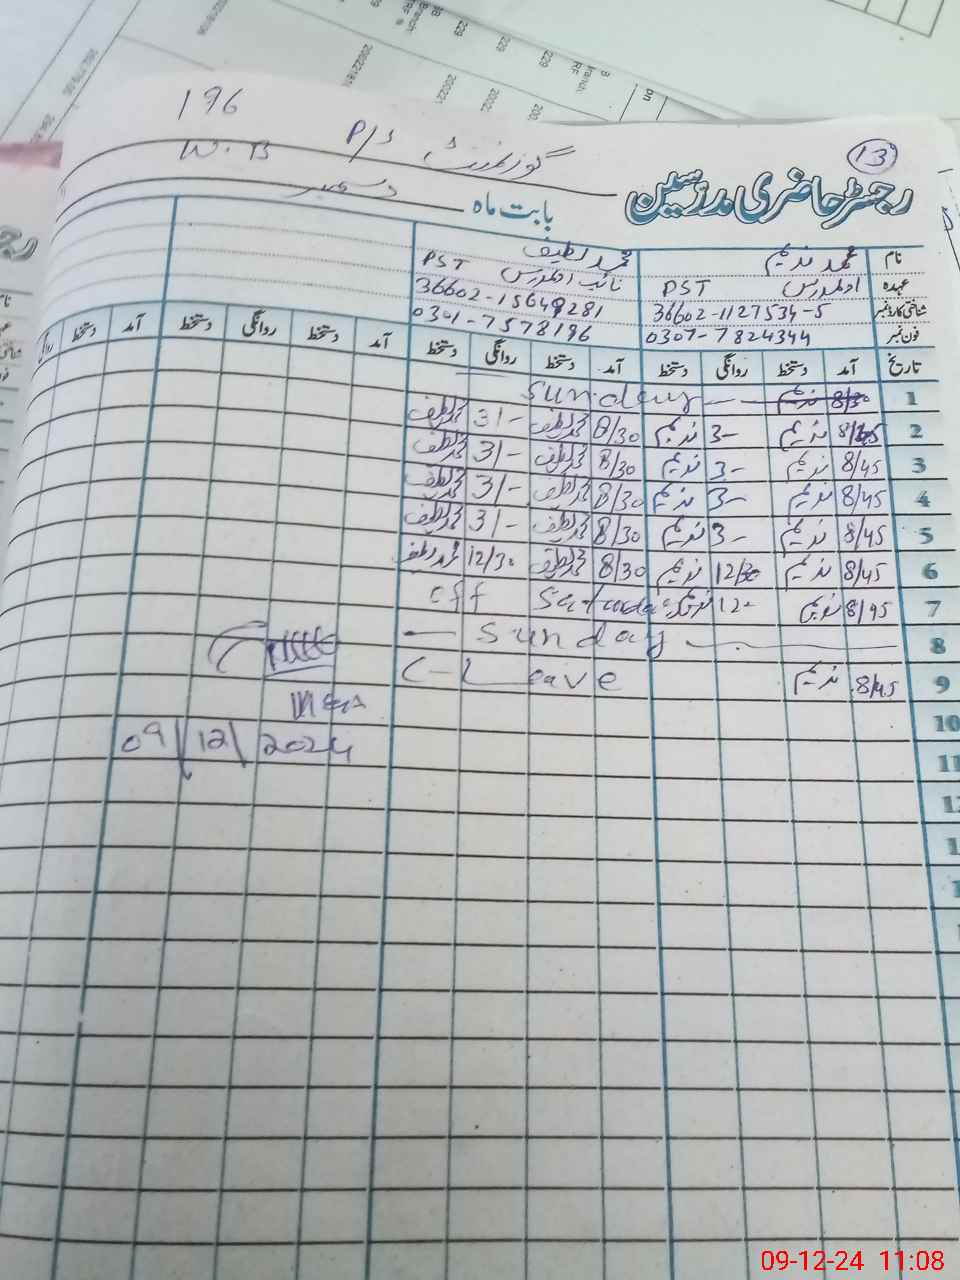 196
گورنمنٹ P/S
W.B
13
رجسٹر حاضری مدرسین
بابت ماہ دسمبر
نام محمد ندیم محمد لطیف
عہدہ PST PST
شناختی کارڈ نمبر 36602-1127534-5 36602-15649281
فون نمبر 0307-7824344 0301-7578196
تاریخ آمد دستخط روانگی دستخط آمد دستخط روانگی دستخط آمد دستخط روانگی دستخط آمد دستخط
1 8/30 ندیم Sunday
2 ندیم 3- ندیم 8/30 محمد لطیف 3/- محمد لطیف
3 8/45 ندیم 3- ندیم 8/30 محمد لطیف 3/- محمد لطیف
4 8/45 ندیم 3- ندیم 8/30 محمد لطیف 3/- محمد لطیف
5 8/45 ندیم 3- ندیم 8/30 محمد لطیف 3/- محمد لطیف
6 8/45 ندیم 12/30 ندیم 8/30 محمد لطیف 12/30 محمد لطیف
7 8/45 ندیم 12- off
8 Sunday
9 8/45 ندیم C-Leave
10
11
09/12/2024
09-12-24 11:08